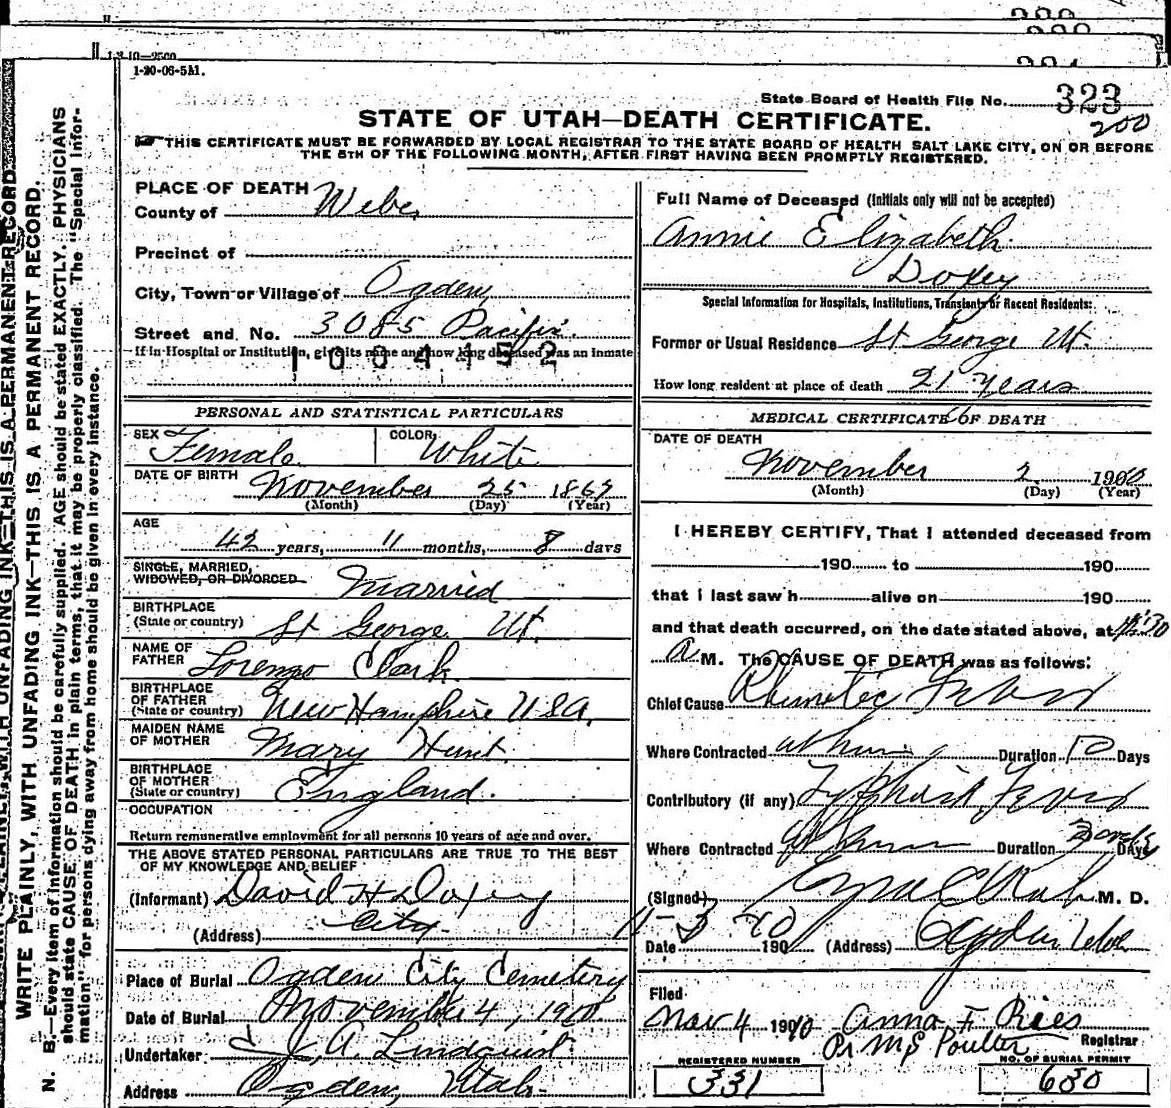 1-20-06-5M.
State Board of Health File No. 323
200
STATE OF UTAH—DEATH CERTIFICATE.
THIS CERTIFICATE MUST BE FORWARDED BY LOCAL REGISTRAR TO THE STATE BOARD OF HEALTH SALT LAKE CITY, ON OR BEFORE
THE 5TH OF THE FOLLOWING MONTH, AFTER FIRST HAVING BEEN PROMPTLY REGISTERED.
WRITE PLAINLY, WITH UNFADING INK—THIS IS A PERMANENT RECORD.
N. B.—Every item of information should be carefully supplied. AGE should be stated EXACTLY. PHYSICIANS
should state CAUSE OF DEATH in plain terms, that it may be properly classified. The "Special Infor-
mation" for persons dying away from home should be given in every instance.
PLACE OF DEATH
County of Weber
Precinct of
City, Town or Village of Ogden,
Street and No. 3085 Pacific.
If in Hospital or Institution, give its name and how long deceased was an inmate
1004152
PERSONAL AND STATISTICAL PARTICULARS
SEX Female COLOR White
DATE OF BIRTH November 25 1867
(Month) (Day) (Year)
AGE
42 years, 11 months, 8 days
SINGLE, MARRIED,
WIDOWED, OR DIVORCED Married
BIRTHPLACE
(State or country) St George Ut.
NAME OF
FATHER Lorenzo Clark
BIRTHPLACE
OF FATHER
(State or country) New Hampshire U.S.A.
MAIDEN NAME
OF MOTHER Mary Hunt
BIRTHPLACE
OF MOTHER
(State or country) England.
OCCUPATION
Return remunerative employment for all persons 10 years of age and over.
THE ABOVE STATED PERSONAL PARTICULARS ARE TRUE TO THE BEST
OF MY KNOWLEDGE AND BELIEF
(Informant) David H Doxey
(Address) City
Place of Burial Ogden City Cemetery
Date of Burial November 4, 1910
Undertaker J. A. Lindquist
Address Ogden, Utah
Full Name of Deceased (Initials only will not be accepted)
Annie Elizabeth
Doxey
Special Information for Hospitals, Institutions, Transients or Recent Residents:
Former or Usual Residence St George Ut.
How long resident at place of death 21 Years
MEDICAL CERTIFICATE OF DEATH
DATE OF DEATH
November 2 1910
(Month) (Day) (Year)
I HEREBY CERTIFY, That I attended deceased from
190 to 190
that I last saw h alive on 190
and that death occurred, on the date stated above, at
A M. The CAUSE OF DEATH was as follows:
Chief Cause Rhumatic Fever
Where Contracted at home Duration 10 Days
Contributory (if any) Typhoid Fever
Where Contracted at home Duration Days
(Signed) M. D.
11-3-10
Date 190 (Address) Ogden Utah
Filed
Nov 4 1910 Anna F Ries
Pr M S Poulter Registrar
REGISTERED NUMBER
331
NO. OF BURIAL PERMIT
680